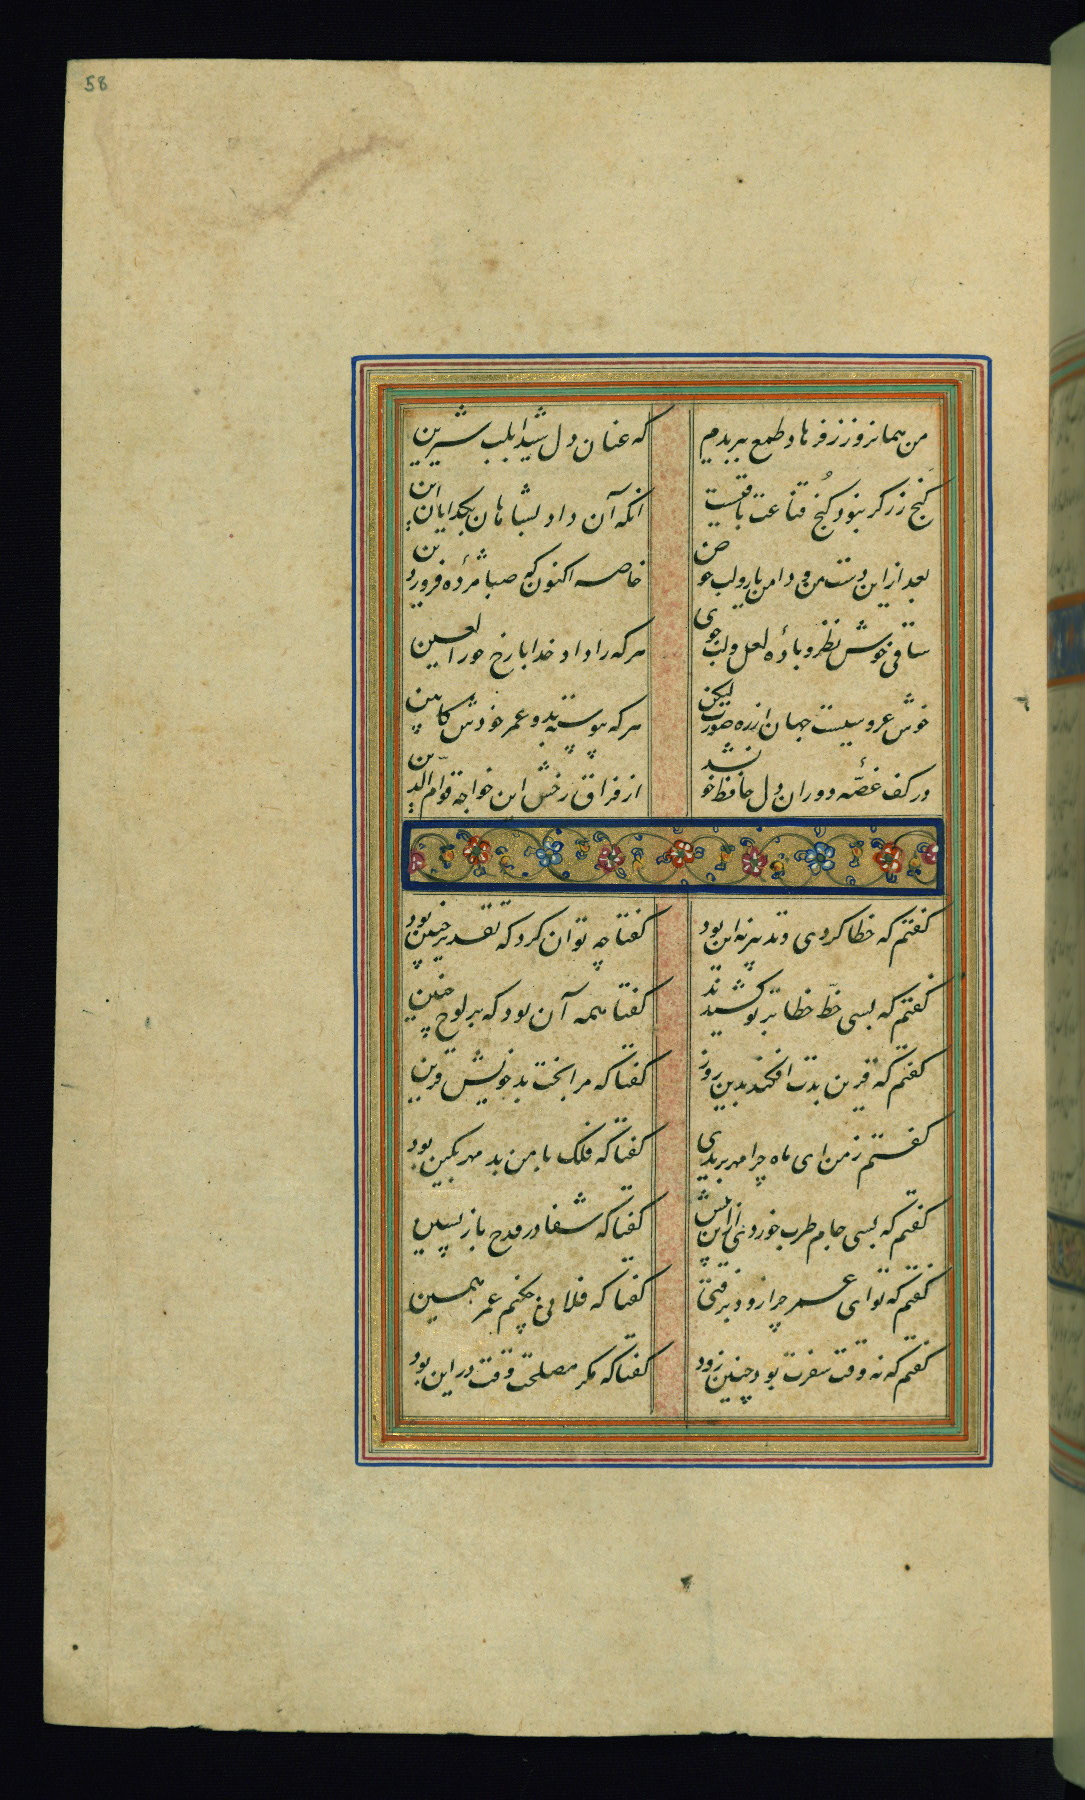 58
من همانروز ز فرهاد طمع ببریدم
که عنان دل شیدا بلب شیرین
گنج زر گر نبود کُنج قناعت باقیست
انکه آن داد بشاهان بکدایان این
بعد ازین دست من و دامن یار و لب عوض
خاصه اکنون که صبا مژدهٔ فروردین
ساقی خوش نظر و بادهٔ لعل و لب جوی
هر که را داد خدا با رخ حور العین
خوش عروسیست جهان از ره صورت لیکن
هر که پیوسته بدو عمر خودش کابین
در کف غصّهٔ دوران دل حافظ خو نشد
از فراق رخش این خواجه قوام الدّین
کفتم که خطا کردی و تدبیر نه این بود
کفتا چه توان کرد که تقدیر چنین بود
کفتم که بسی خطّ خطا بر تو کشیدند
کفتا همه آن بود که بر لوح چنین
کفتم که قرین بدت افکند بدین روز
کفتا که مرا بخت بد خویش قرین
کفتم ز من ای ماه چرا مهر بریدی
کفتا که فلک با من بد مهر بکین بود
کفتم که بسی جام طرب خوردی ازین پیش
کفتا که شفا در قدح باز پسین
کفتم که تو ای عمر چرا زود برفتی
کفتا که فلانی چکنم عمر همین
کفتم که نه وقت سفرت بود چنین زود
کفتا که مکر مصلحت وقت در این بود